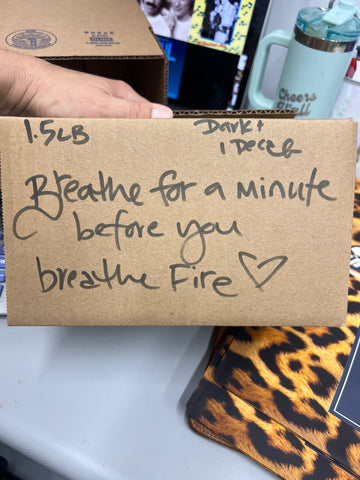 1.5LB
Dark +
1 Decaf
Breathe for a minute
before you
breathe Fire ♡
Cheers
Y'all